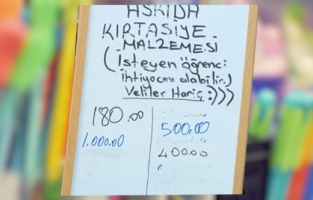 ASKIDA
KIRTASİYE
MALZEMESİ
(İsteyen öğrenci
İhtiyacını alabilir.)
Veliler Hariç :)))
180.00
500.00
1.000.00
400.00